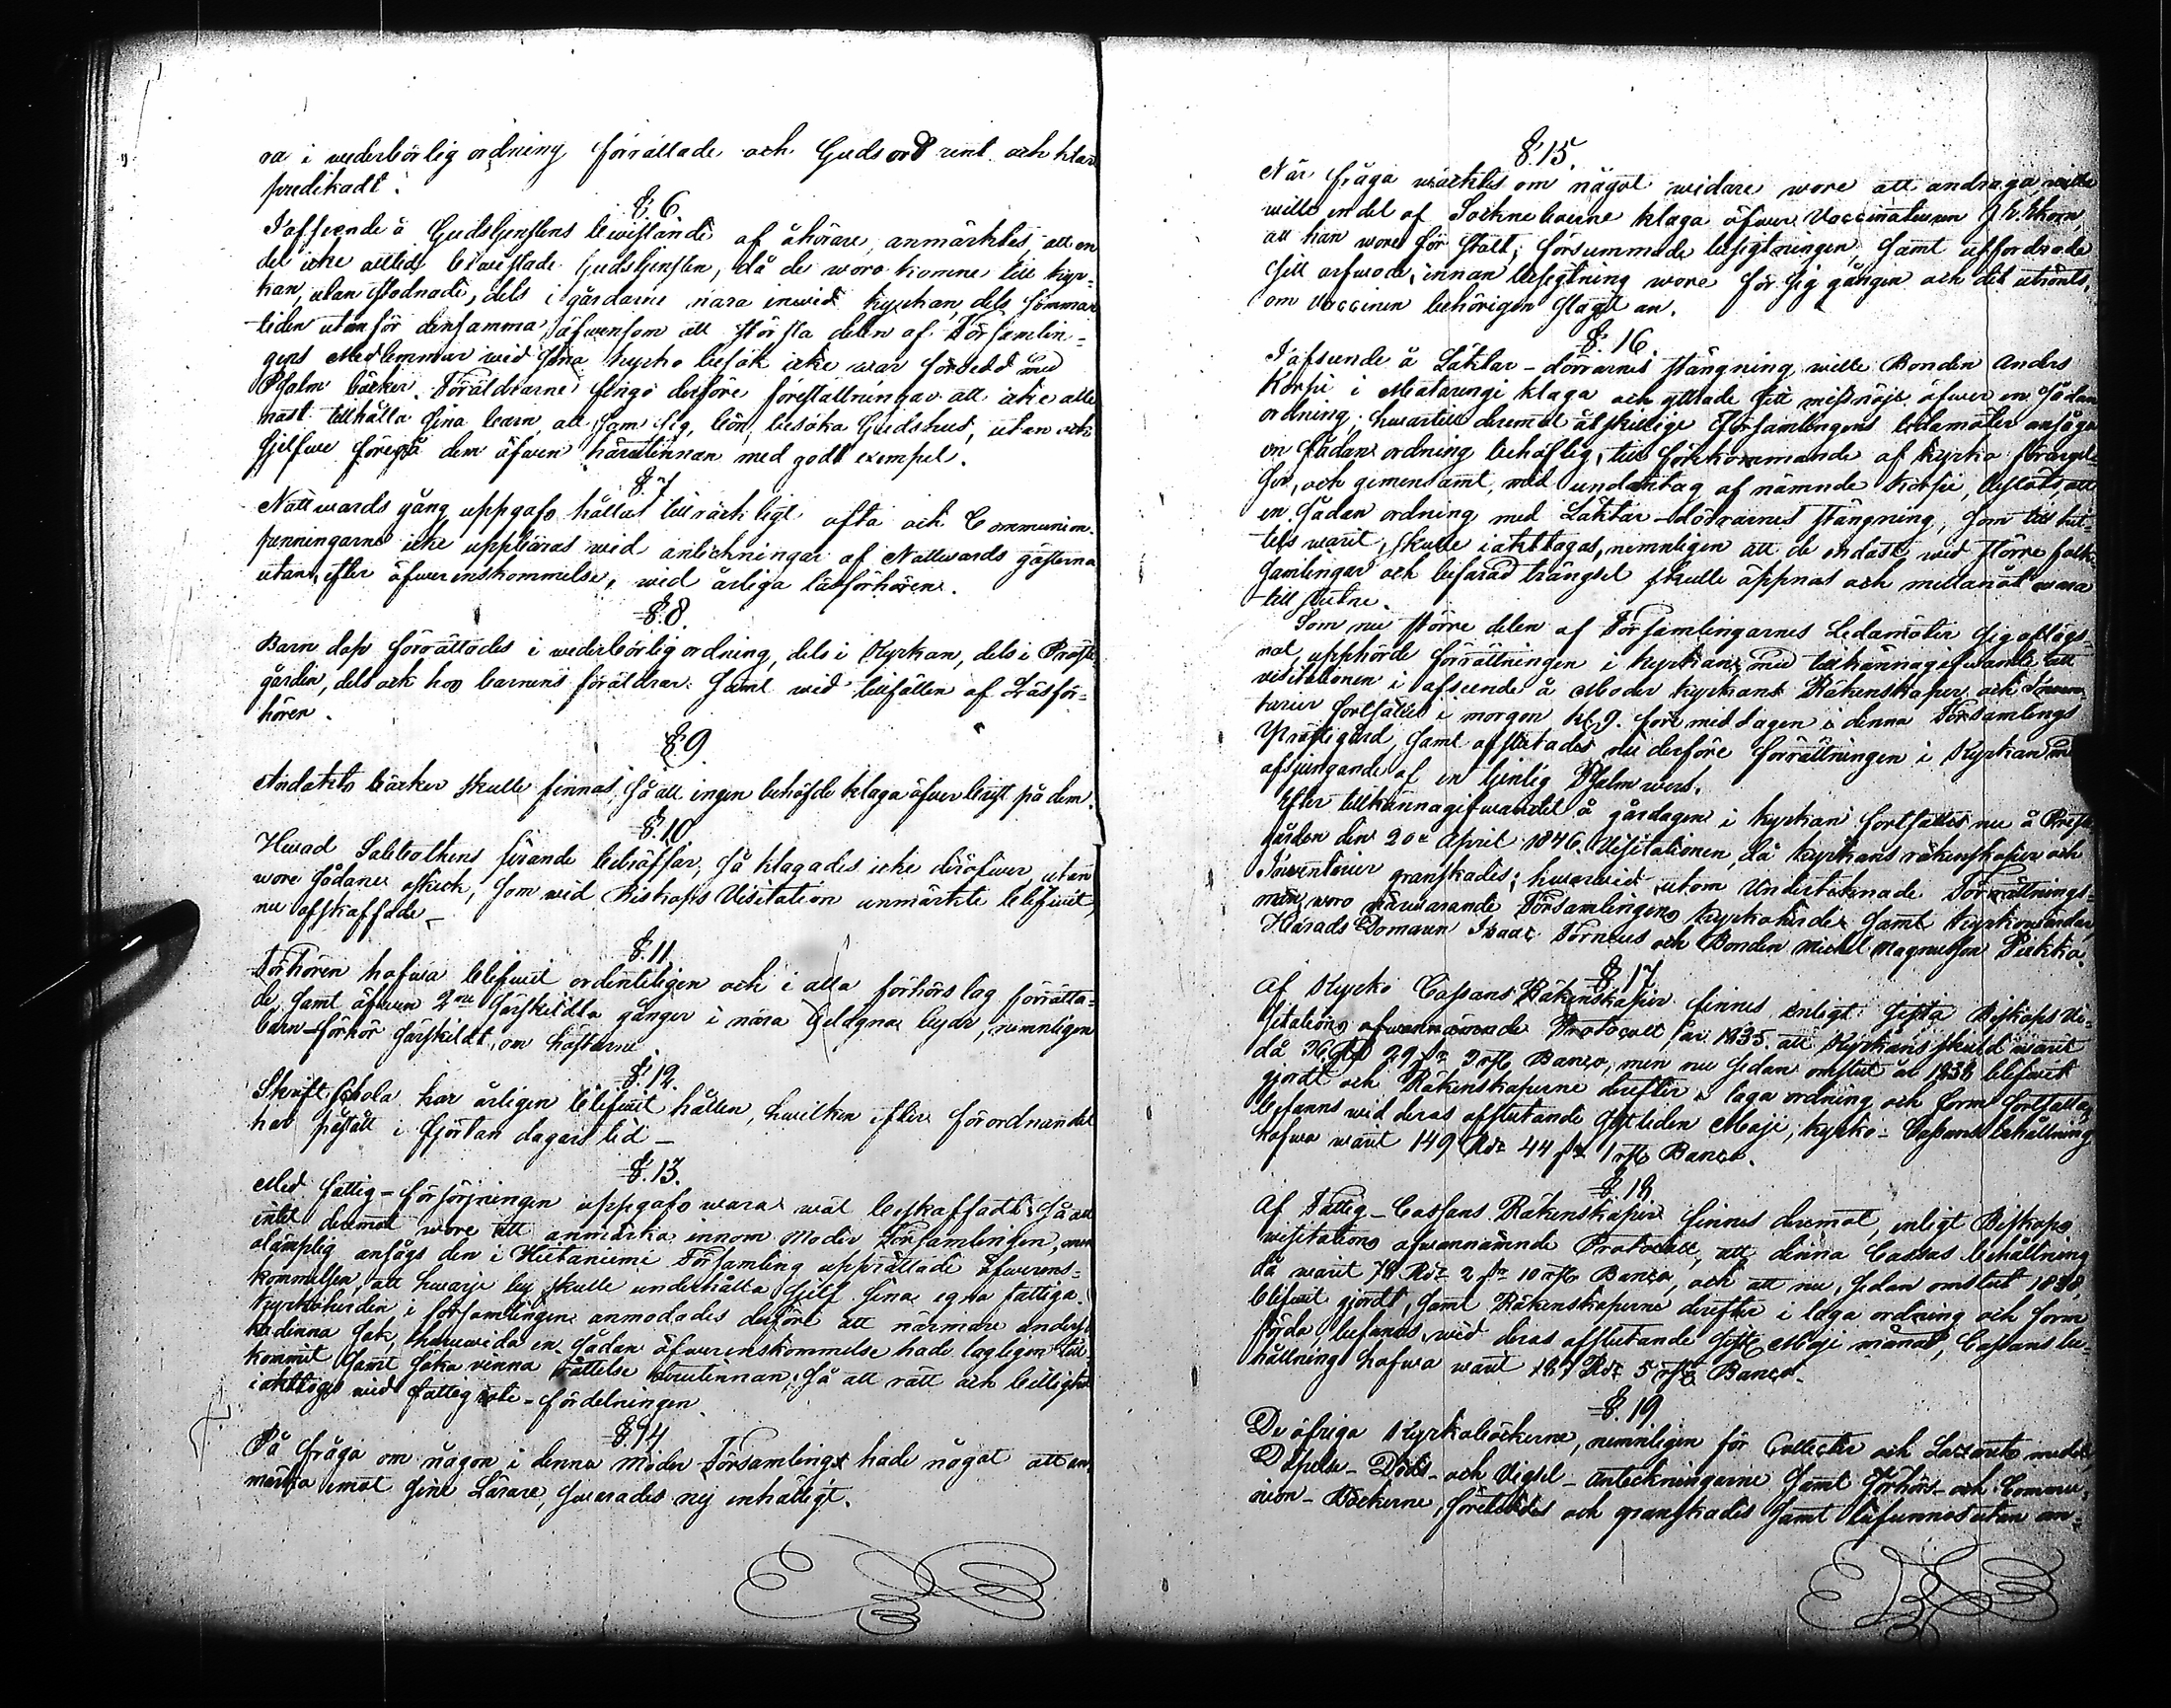 ra i wederbörlig ordning förrättade och Guds ord rent och klar
predikadt.
§. 6.
I afseende å Gudstjenstens bewistande af åhörare, anmärktes, att en
del icke alltid bewistade Gudstjensten, då de woro komne till kyr-
kan, utan stodnade, dels i gårdarne nära inwid kyrkan, dels sommar
tiden utanför densamma, äfwensom att största delen af Församlin-
gens Medlemmar wid sina kyrko besök icke war försedd med
Psalm böcker. Föräldrarne fingo derföre föreställningar att icke alle
nast tillhålla sina barn, att, som sig bör, besöka Guds hus, utan ock
sjelfwe föregå dem äfwen härutinnan med godt exempel.
§. 7.
Nattwards gång uppgafs hållas tillräckligt ofta och Communion-
penningarne icke uppbäras wid anteckningar af Nattwards gästerna
utan, efter öfwerenskommelse, wid årliga läsförhören.
§. 8.
Barn dop förrättades i wederbörlig ordning, dels i Kyrkan, dels i Prest-
gården, dels ock hos barnens föräldrar samt wid tillfällen af Läsför-
hören.
§. 9.
Andakts böcker skulle finnas, så att ingen behöfde klaga öfwer brist på dem.
§. 10.
Hwad Sabbathens firande beträffar, så klagades icke deröfwer, utan
wore sådane oskick, som wid Biskops Visitation anmärkte blifwit,
nu afskaffade.
§. 11.
Förhören hafwa blifwit ordenteligen och i alla förhörs lag förrätta-
de, samt äfwen 2ne särskildta gånger i nära belägna byar, nemnligen
barn-förhör särskildt om höstarne.
§. 12.
Skrift Schola har årligen blifwit hållen, hwilken efter förordnandet
har påstått i fjorton dagars tid –
§. 13.
Med fattig-försörjningen uppgafs wara wäl beskaffadt, så att
intet deremot wore att anmärka innom Moder Församlingen, men
olämplig ansågs den i Hietaniemi Församling upprättade öfwerens-
kommelsen, att hwarje by skulle underhålla sjelf sina egna fattiga.
Kyrkoherden i församlingen anmodades derföre att närmare undersö-
ka denna sak, huruwida en sådan öfwerenskommelse hade lagligen till
kommit samt söka winna rättelse härutinnan, så att rätt och billighet
iakttoges wid fattig rote-fördelningen.
§. 14.
På fråga om någon i denna Moder Församling hade något att an-
märka emot sine Lärare, swarades nej enhälligt.
§. 15.
När fråga wäcktes om något widare wore att andraga
wille en del af Socknebоerne klaga öfwer Vaccinatеuren
att han wore för stolt, försummade besigtningen, samt utfordrade
sitt arfwode, innan besigtning wore för sig gången och det utrönts,
om vaccinen behörigen slagit an.
§. 16.
I afseende å Läktar-dörrarnes stängning wille Bonden Anders
Korpi i Matarengi klaga och yttrade sitt missnöje öfwer en sådan
ordning; hwartill deremot åtskillige Församlingens ledamöter ansågo
en sådan ordning behöflig, till förekommande af kyrko förargel-
ser, och gemensamt, med undantag af nämnde Korpi, beslöts, att
en sådan ordning med Läktar-dörrarnes stängning, som till hit-
tills warit, skulle iakttagas, nemnligen att de endast wid större folk
samlingar och befarad trängsel skulle öppnas och mellanåt wara
till slutne.
Som nu större delen af Församlingarnes Ledamöter sig aflägs-
nat, upphörde förrättningen i kyrkan, med tillkännagifwande att
visitationen i afseende å Moder kyrkans Räkenskaper och Inwen-
tarier fortsättes i morgon kl. 9. före middagen i denna Församlings
Prästegård, samt afslutades nu derföre förrättningen i Kyrkan med
afsjungande af en tjenlig Psalm wers.
Efter tillkännagifwandet å gårdagen i kyrkan fortsattes nu å Prest-
gården den 20de April 1846. Visitationen, då kyrkans räkenskaper och
Inventarier granskades; hwarwid utom Undertecknade Förrättnings-
män, woro närwarande Församlingens Kyrkoherde samt Kyrkowärdar,
Härads Domaren Isaac Törneus och Bonden Michel Magnusson Pirkka.
§. 17
Af Kyrko Cassans Räkenskaper finnes enligt sista Biskops Vi-
sitations ofwannämnde Protocoll år 1835. att Kyrkans skuld warit
då 29 sk 3 rst Banco, men nu sedan omslut år 1838 blifwit
gjordt och Räkenskaperne derefter i laga ordning och form fortsattes,
befanns wid deras afslutande sistleden Maji, kyrko-Cassans behållning
hafwa warit 149 Rdr 44 sk 1 rst Banco.
§. 18
Af Fattig-Cassans Räkenskaper finnes deremot, enligt Biskops
visitations ofwannämnde Protocoll, att denna Cassas behållning
då warit 78 Rdr 2 sk 10 rst Banco, och att nu, sedan omslut 1838,
blifwit gjordt, samt Räkenskaperne derefter i laga ordning och form
förda befanns, wid deras afslutande sistl Maji månad, Cassans be-
hållning hafwa warit 187 Rdr 5 rst Banco.
§. 19.
De öfriga Kyrkoböckerne, nemnligen för Collecter och Lazaretts medel,
Döpelse-Döds-och Vigsel-anteckningarne samt Förhörs-och Commu-
nion-Böckerne, företeddes och granskades samt befunnos utan an-